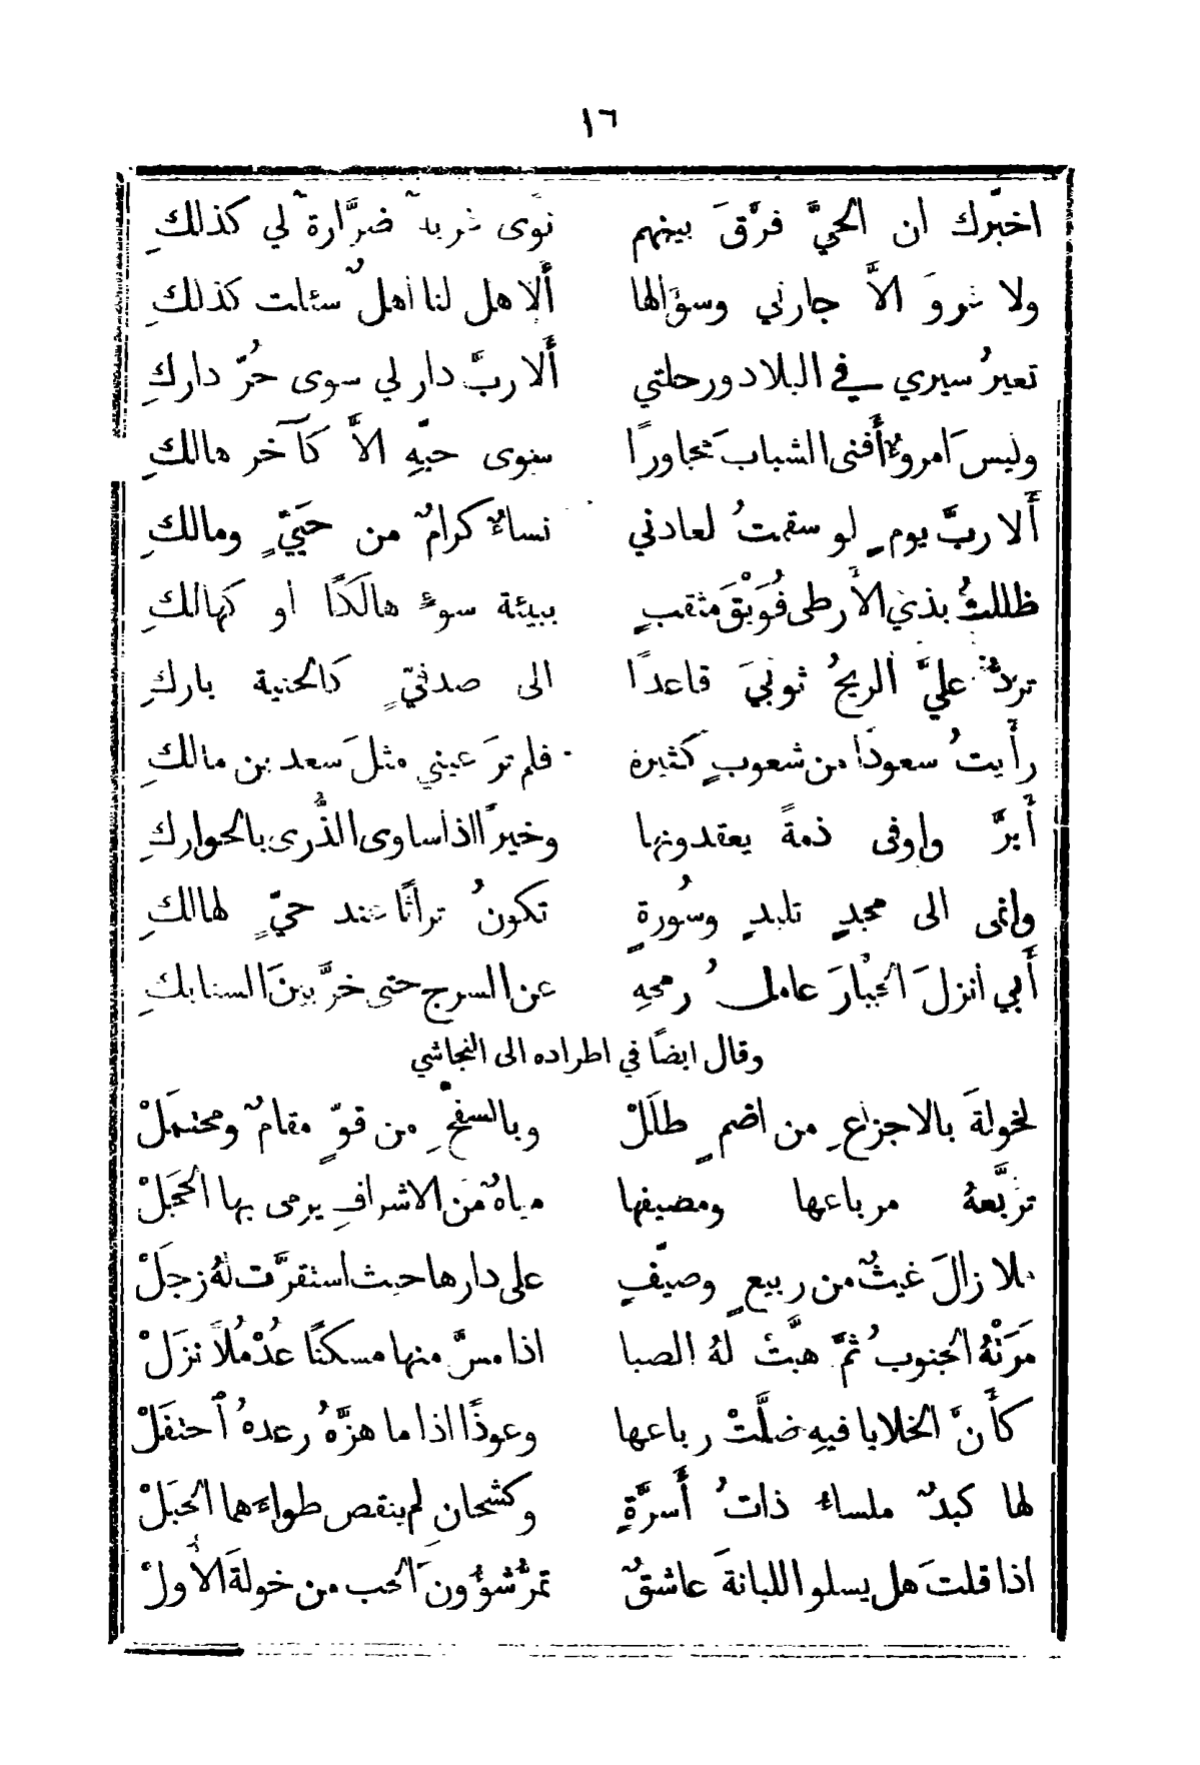 ١٦
اخبّرك ان الحيَّ فرَّقَ بينهم نوًى غربةٌ ضرَّارةٌ لي كذلكِ
ولا غروَ الاَّ جارتي وسؤالها أَلا هل لنا اهلٌ سئلت كذلكِ
تعيرُ سيري في البلاد ورحلتي أَلا ربَّ دار لي سوى حُرّ داركِ
وليسَ امروءٌ أَفنى الشبابَ مجاورًا سوى حيّهِ الاَّ كآخر هالكِ
أَلا ربَّ يومٍ لو سقمتُ لعادني نساءٌ كرامٌ من حُيَيّ ٍ ومالكِ
ظللتُ بذي الأَرطى فُوَيْقَ مثقبٍ ببيئة سوءٍ هالكًا او كهالكِ
تردُّ عليَّ الريحُ ثوبيَ قاعدًا الى صدفيّ ٍ كالحنية باركِ
رأَيتُ سعودًا من شعوبٍ كثيرة فلم ترَ عيني مثلَ سعد بن مالكِ
أَبرَّ واوفى ذمةً يعقدونها وخيرًا اذا ساوى الذُّرى بالحواركِ
وانمى الى مجدٍ تليدٍ وسُورةٍ تكونُ تراثًا عند حيّ ٍ لهالكِ
أَبي انزلَ الجبَّارَ عاملُ رمحهِ عن السرج حتى خرَّ بينَ السنابكِ
وقال ايضًا في اطراده الى النجاشي
لخولةَ بالاجزاعِ من اضمٍ طلَلْ وبالسفحِ من قوّ ٍ مقامٌ ومحتمَلْ
تربَّعهُ مرباعها ومصيفها مياهٌ من الاشرافِ يرمى بها الحجَلْ
فلا زالَ غيثٌ من ربيعٍ وصيّفٍ على دارها حيث استقرَّت لهُ زجَلْ
مَرَتْهُ الجنوبُ ثمَّ هبَّتْ لهُ الصبا اذا مسَّ منها مسكنًا عُدْمُلاً نزَلْ
كأَنَّ الخلايا فيهِ ضلَّتْ رباعها وعوذًا اذا ما هزَّهُ رعدهُ احتفَلْ
لها كبدٌ ملساءُ ذاتُ أَسرَّةٍ وكشحانِ لم ينقص طواءَهما الحبَلْ
اذا قلتَ هل يسلو اللبانةَ عاشقٌ تمرُّ شؤُونَ الحب من خولةَ الأُولْ